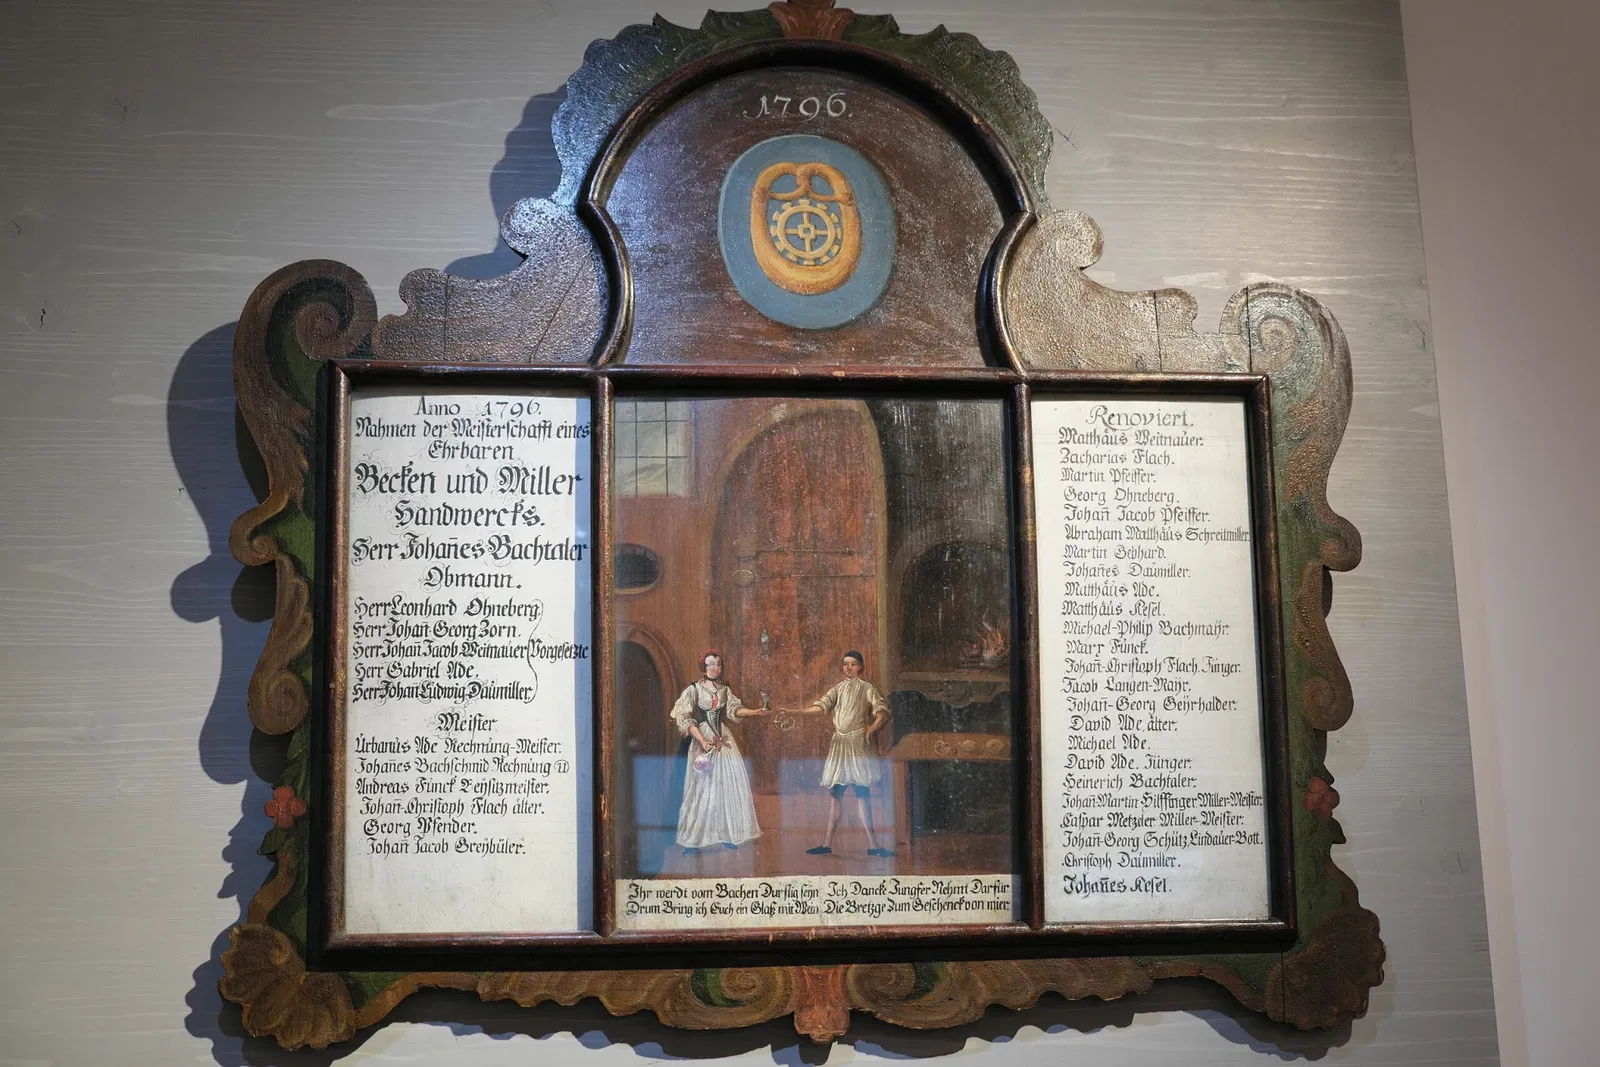 1796.
Anno 1796.
Nahmen der Meisterschafft eines
Ehrbaren
Becken und Miller
Handwercks.
Herr Johan̄es Bachtaler
Obmann.
Herr Leonhard Ohneberg
Herr Johan̄ Georg Zorn.
Herr Johan̄ Jacob Weitnauer Vorgesetzte
Herr Gabriel Ade.
Herr Johan̄ Ludwig Daumiller
Meister
Urbanus Ade Rechnung-Meister.
Johan̄es Bachschmid Rechnung
Andreas Funck Beysitzmeister.
Johan̄-Christoph Flach älter.
Georg Pfender.
Johan̄ Jacob Greÿbüler.
Ihr werdt vom Bachen Durstig seÿn
Drum Bring ich Euch ein Glaß mit Wein
Ich Dancke Jungfer Nehmt Darfür
Die Bretzge Zum Geschenck von mier.
Renoviert.
Matthäus Weitnauer.
Zacharias Flach.
Martin Pfeiffer.
Georg Ohneberg.
Johan̄ Jacob Pfeiffer.
Abraham Matthäus Schreitmiller
Martin Gebhard.
Johan̄es Daumiller.
Matthäus Ade.
Matthäus Kesel.
Michael-Philip Bachmaÿr.
Marx Funck.
Johan̄-Christoph Flach Jünger.
Jacob Langen-Maÿr.
Johan̄-Georg Geÿrhalder.
David Ade älter.
Michael Ade.
David Ade. Jünger.
Heinerich Bachtaler.
Johan̄-Martin Hilffinger Miller-Meister.
Caspar Metzder Miller-Meister.
Johan̄-Georg Schütz Lindauer-Bott.
Christoph Daumiller.
Johan̄es Kesel.